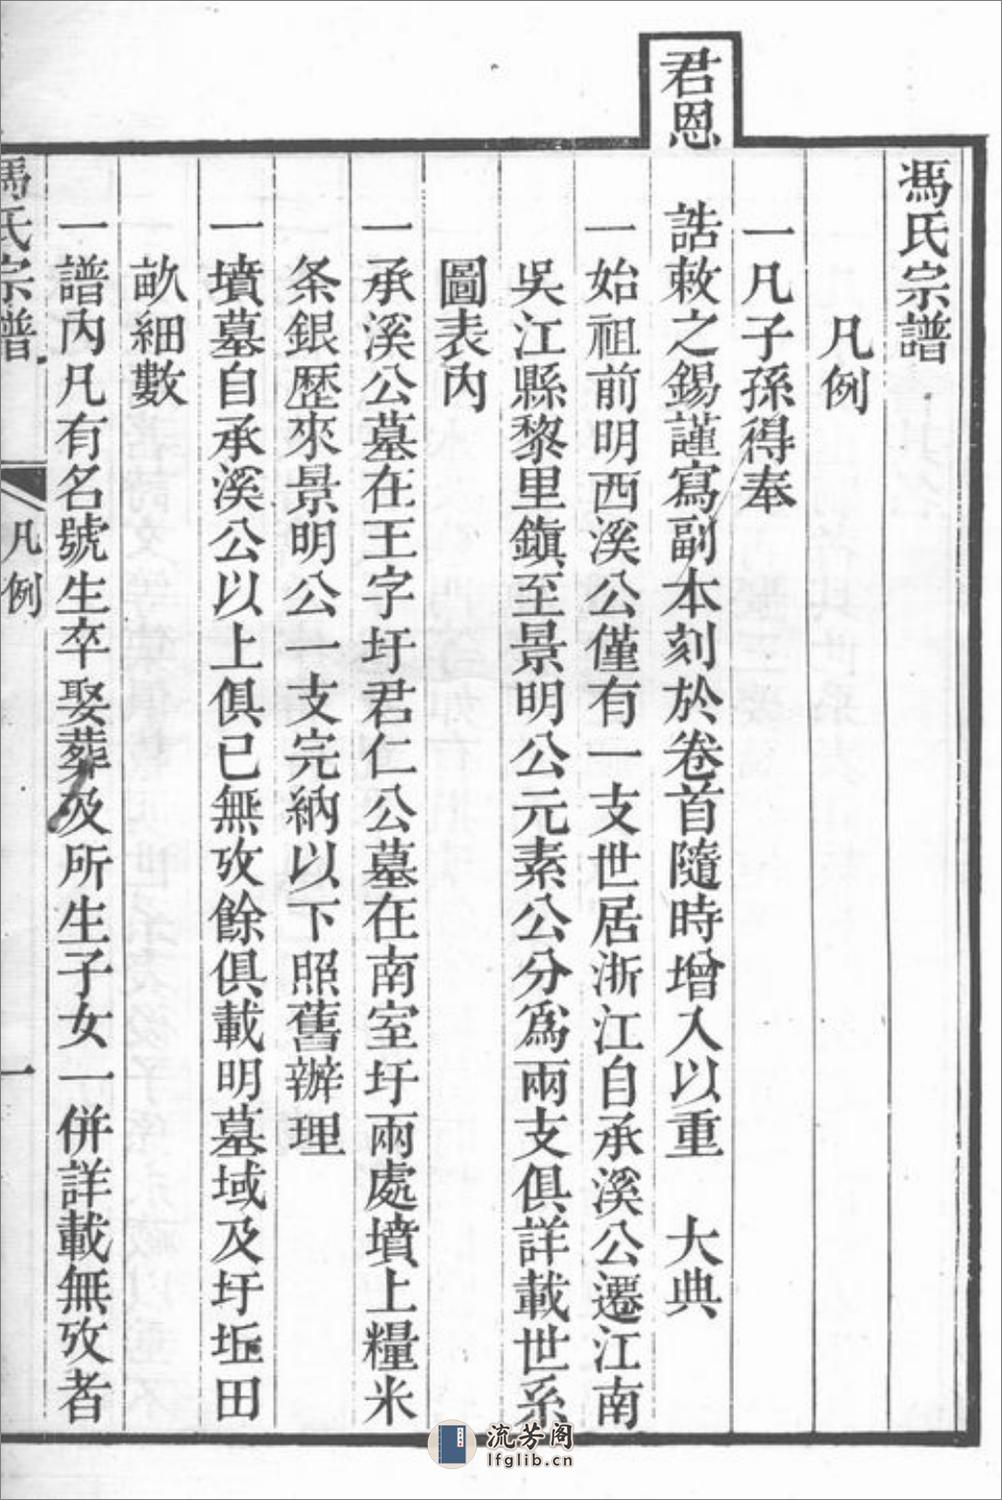 馮氏宗譜
凡例
一凡子孫得奉
君恩
誥敕之錫謹寫副本刻於卷首隨時增入以重 大典
一始祖前明西溪公僅有一支世居浙江自承溪公遷江南
吳江縣黎里鎭至景明公元素公分爲兩支俱詳載世系
圖表內
一承溪公墓在王字圩君仁公墓在南室圩兩處墳上糧米
条銀歷來景明公一支完納以下照舊辦理
一墳墓自承溪公以上俱已無攷餘俱載明墓域及圩坵田
畝細數
一譜內凡有名號生卒娶葬及所生子女一併詳載無攷者
馮氏宗譜
凡例
一
流芳阁
lfglib.cn